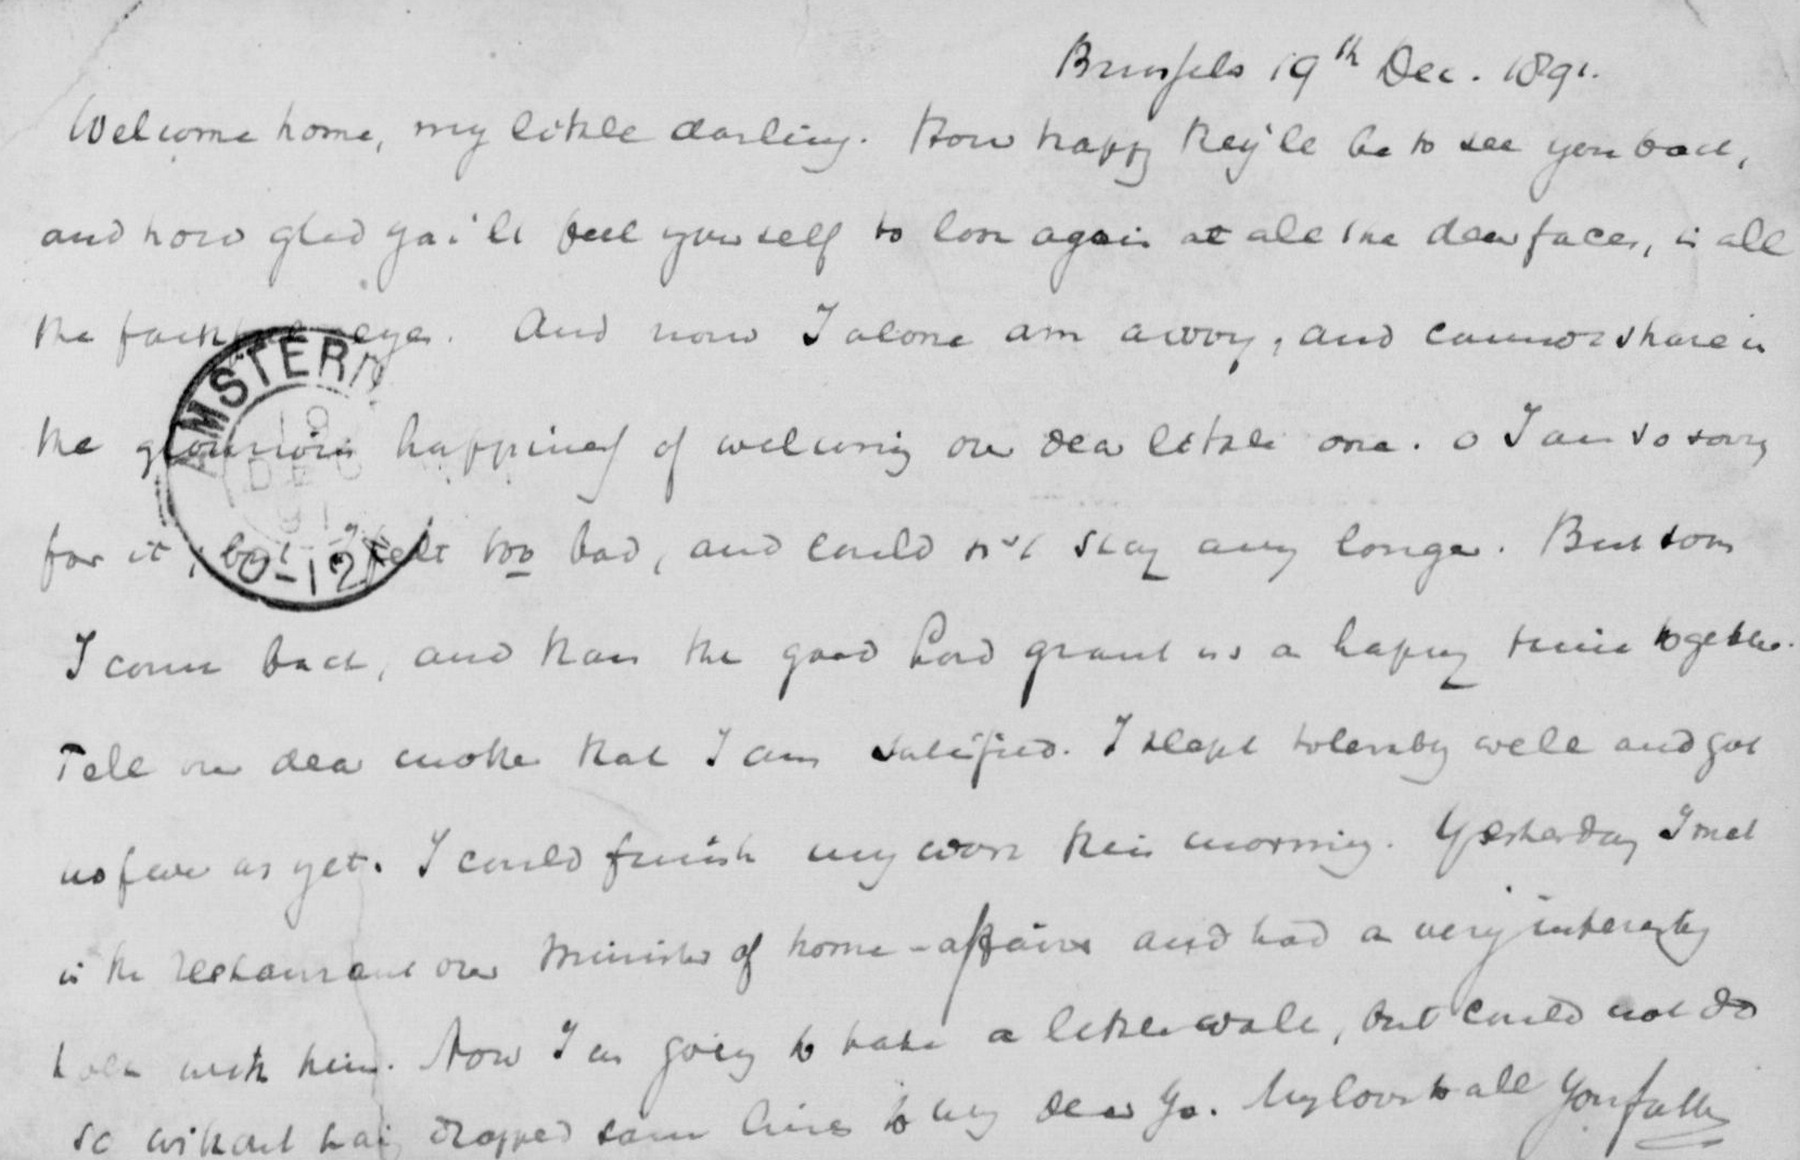 Brussels 19th Dec. 1891.
Welcome home, my little darling. How happy they'le be to see you back,
and how glad you'll feel yourself to look again at all the dear faces, in all
the faithful eyes. And now I alone am away, and cannot share in
the glorious happiness of welcoming our dear little one. O I am so sorry
for it, but I felt too bad, and could not stay any longer. But soon
I come back, and than the good Lord grant us a happy time together.
Tell our dear mother that I am satisfied. I slept tolerably well and got
no fever as yet. I could finish my work this morning. Yesterday I met
in the restaurant our Minister of home-affairs and had a very interesting
talk with him. Now I am going to take a little walk, but could not do
so without having dropped some lines to my dear Jo. My love to all Your father
AMSTERD
19
DEC
91
10-12